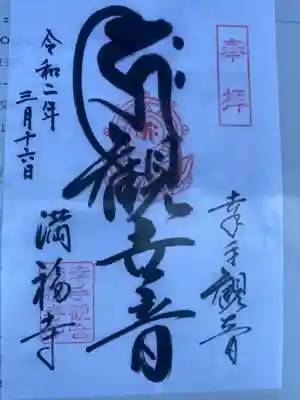 奉拝
幸手観音
観世音
令和二年
三月十六日
満福寺